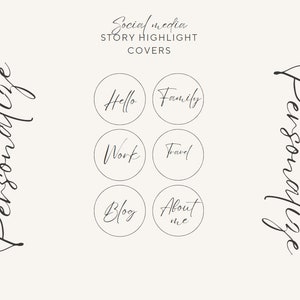 Social media
STORY HIGHLIGHT
COVERS
Personalize
Personalize
Hello
Family
Work
Travel
Blog
About
me